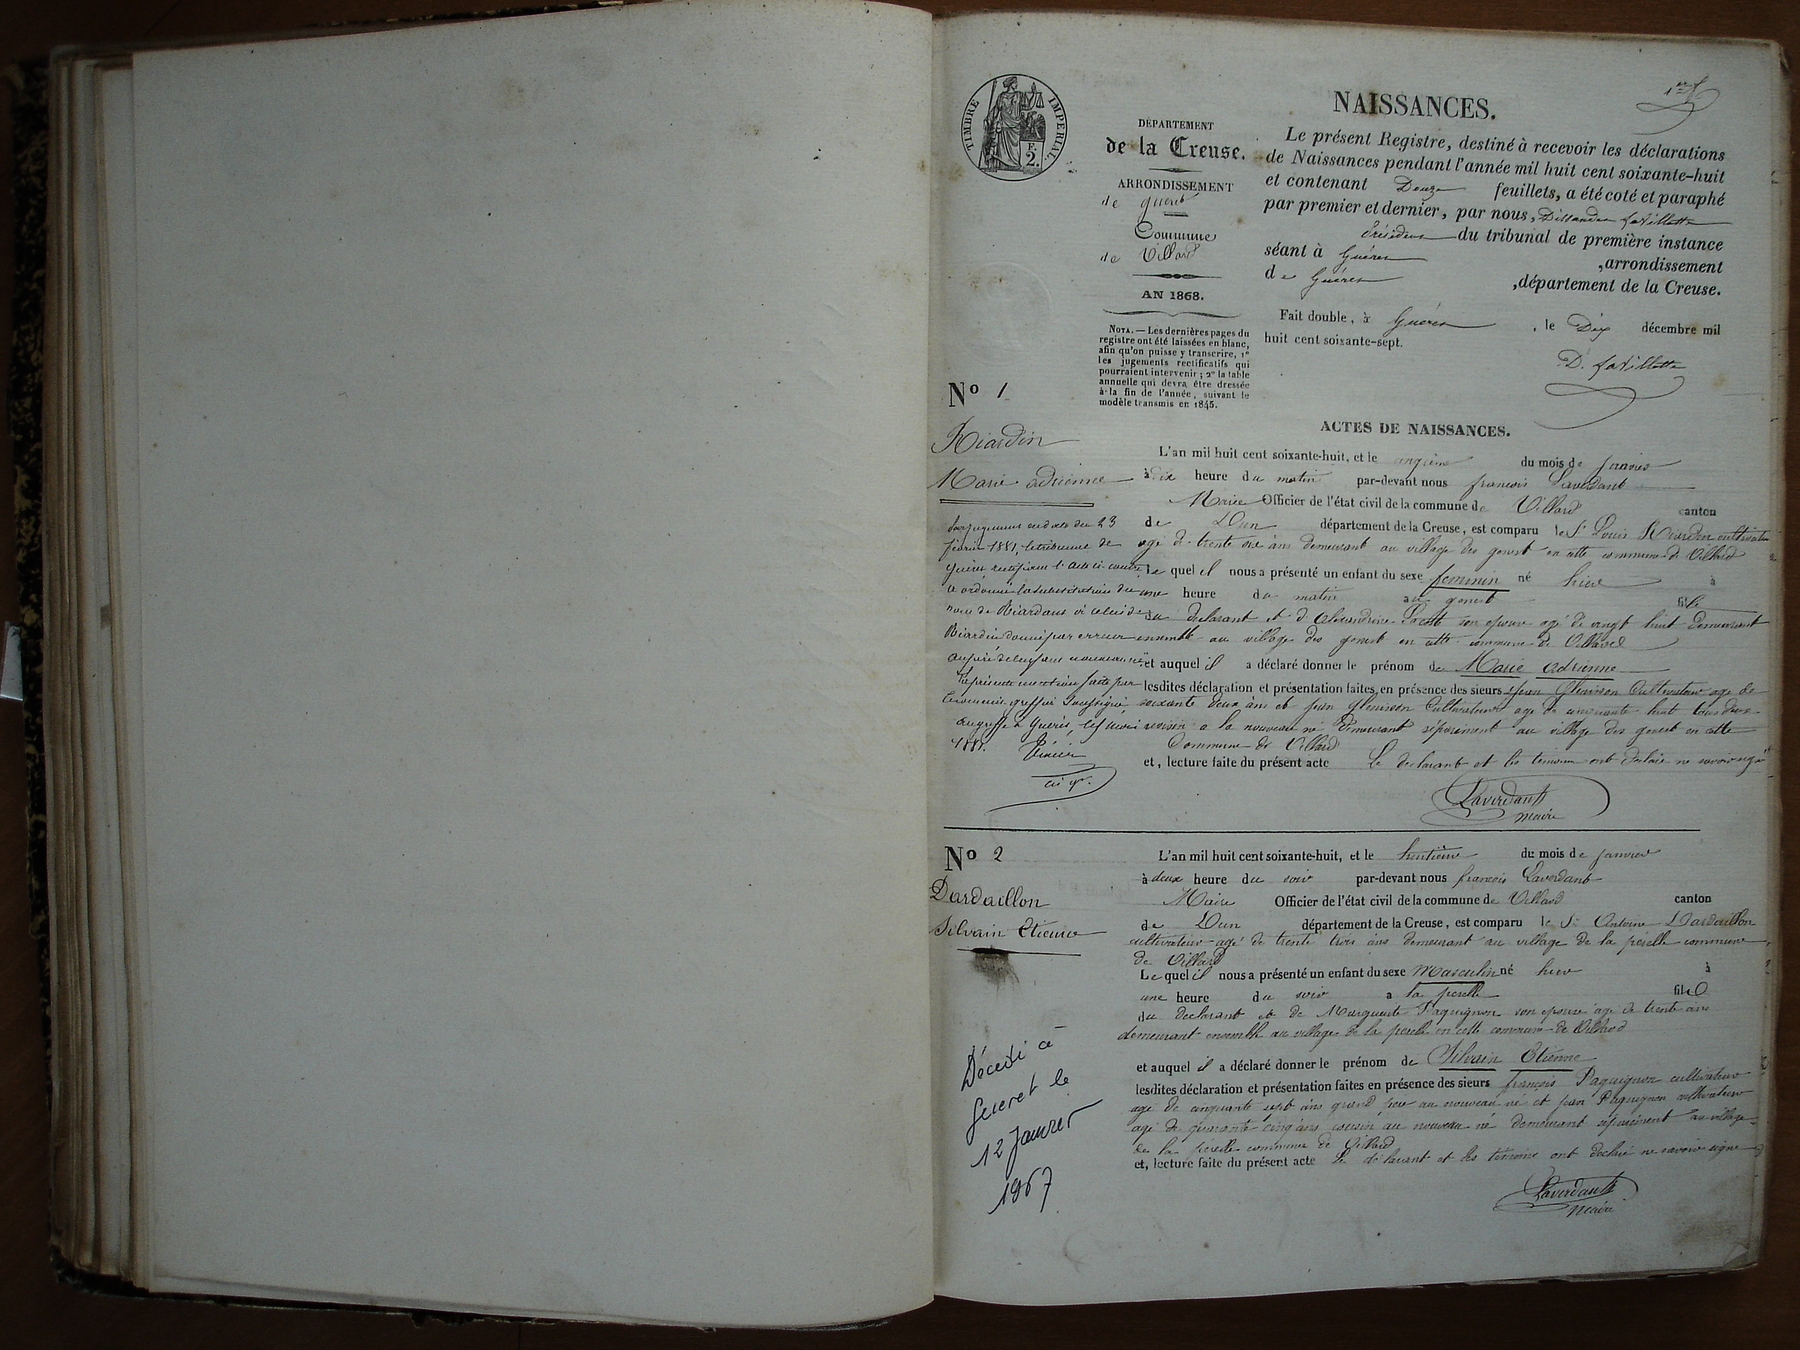 TIMBRE IMPERIAL.
F.
2.
NAISSANCES.
DÉPARTEMENT
de la Creuse.
ARRONDISSEMENT
de gueret
Commune
de Villard
AN 1868.
NOTA. — Les dernières pages du
registre ont été laissées en blanc,
afin qu'on puisse y transcrire, 1º
les jugements rectificatifs qui
pourraient intervenir ; 2º la table
annuelle qui devra être dressée
à la fin de l'année, suivant le
modèle transmis en 1845.
Le présent Registre, destiné à recevoir les déclarations
de Naissances pendant l'année mil huit cent soixante-huit
et contenant Douze feuillets, a été coté et paraphé
par premier et dernier, par nous, Dissandes Lavillatte
Président du tribunal de première instance
séant à Guéret ,arrondissement
de Guéret ,département de la Creuse.
Fait double, à Guéret , le Dix décembre mil
huit cent soixante-sept.
D. Lavillatte
Nº 1
Riardin
Marie adrienne
Par jugement en date du 23
février 1881, le tribunal de
Guéret rectifiant l'acte ci-contre
a ordonné la substitution du
nom de Riardant à celui de
Riardin donné par erreur
au père de l'enfant
La présente mention faite par
le commis greffier soussigné
au greffe à Guéret, le
1881.
ACTES DE NAISSANCES.
L'an mil huit cent soixante-huit, et le onzième du mois de janvier
à dix heure du matin par-devant nous françois Laverdant
Maire Officier de l'état civil de la commune de Villard canton
de Dun département de la Creuse, est comparu le Sr Louis Riardin cultivateur
age de trente ans demeurant au village des genest en cette commune de Villard
Le quel il nous a présenté un enfant du sexe feminin né hier à
une heure du matin au genest fille
du declarant et d Alexandrine son epouse age de vingt huit demeurant
ensemble au village des genest en cette commune de Villard
et auquel il a déclaré donner le prénom de Marie adrienne
lesdites déclaration et présentation faites, en présence des sieurs jean Cultivateur age de
soixante deux ans et jean Cultivateur age de cinquante huit tous deux
voisin a la nouveau né demeurant séparement au village des genest en cette
Commune de Villard
et, lecture faite du présent acte Le declarant et les temoins ont declaré ne savoir signe
Laverdant
maire
Nº 2
Dardaillon
Silvain Etienne
Décédé à
Gueret le
12 Janvier
1967
L'an mil huit cent soixante-huit, et le huitième du mois de janvier
à deux heure du soir par-devant nous françois Laverdant
Maire Officier de l'état civil de la commune de Villard canton
de Dun département de la Creuse, est comparu le Sr Antoine Dardaillon
cultivateur agé de trente trois ans demeurant au village de la commune
de Villard
Le quel il nous a présenté un enfant du sexe Masculin né hier à
une heure du soir a la fils
du declarant et de Marguerite Paquignon son epouse age de trente ans
demeurant ensemble au village de la en cette commune de Villard
et auquel il a déclaré donner le prénom de Silvain Etienne
lesdites déclaration et présentation faites en présence des sieurs françois Paquignon cultivateur
age de cinquante sept ans grand pere au nouveau né et jean Paquignon cultivateur
age de cinq ans cousin au nouveau né demeurant séparement au village
de la commune de Villard
et, lecture faite du présent acte Le declarant et les témoins ont declaré ne savoir signe
Laverdant
maire